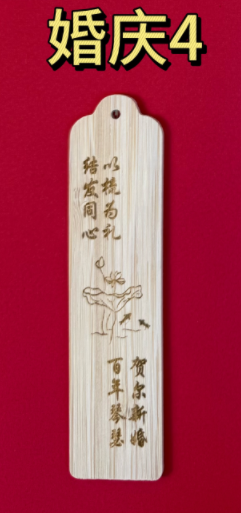 婚庆4
以梳为礼
结发同心
贺尔新婚
百年琴瑟